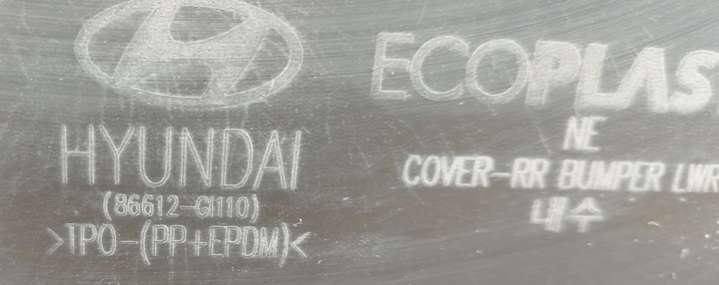 HYUNDAI
(86612-GI110)
>TPO-(PP+EPDM)<
ECOPLAS
NE
COVER-RR BUMPER LWR
내수